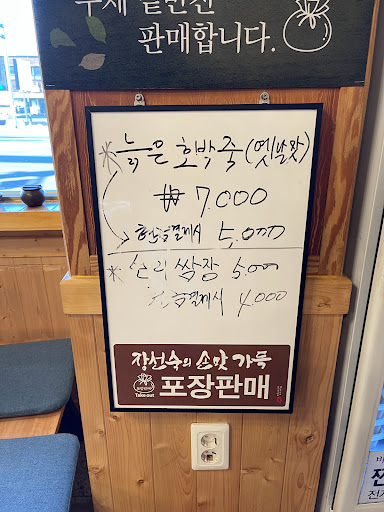 판매합니다.
※ 늙은 호박죽 (옛날맛)
₩ 7,000
현금결제시 5,000
쌈장 5,000
현금결제시 4,000
장선숙의 손맛 가득
Take out
포장판매